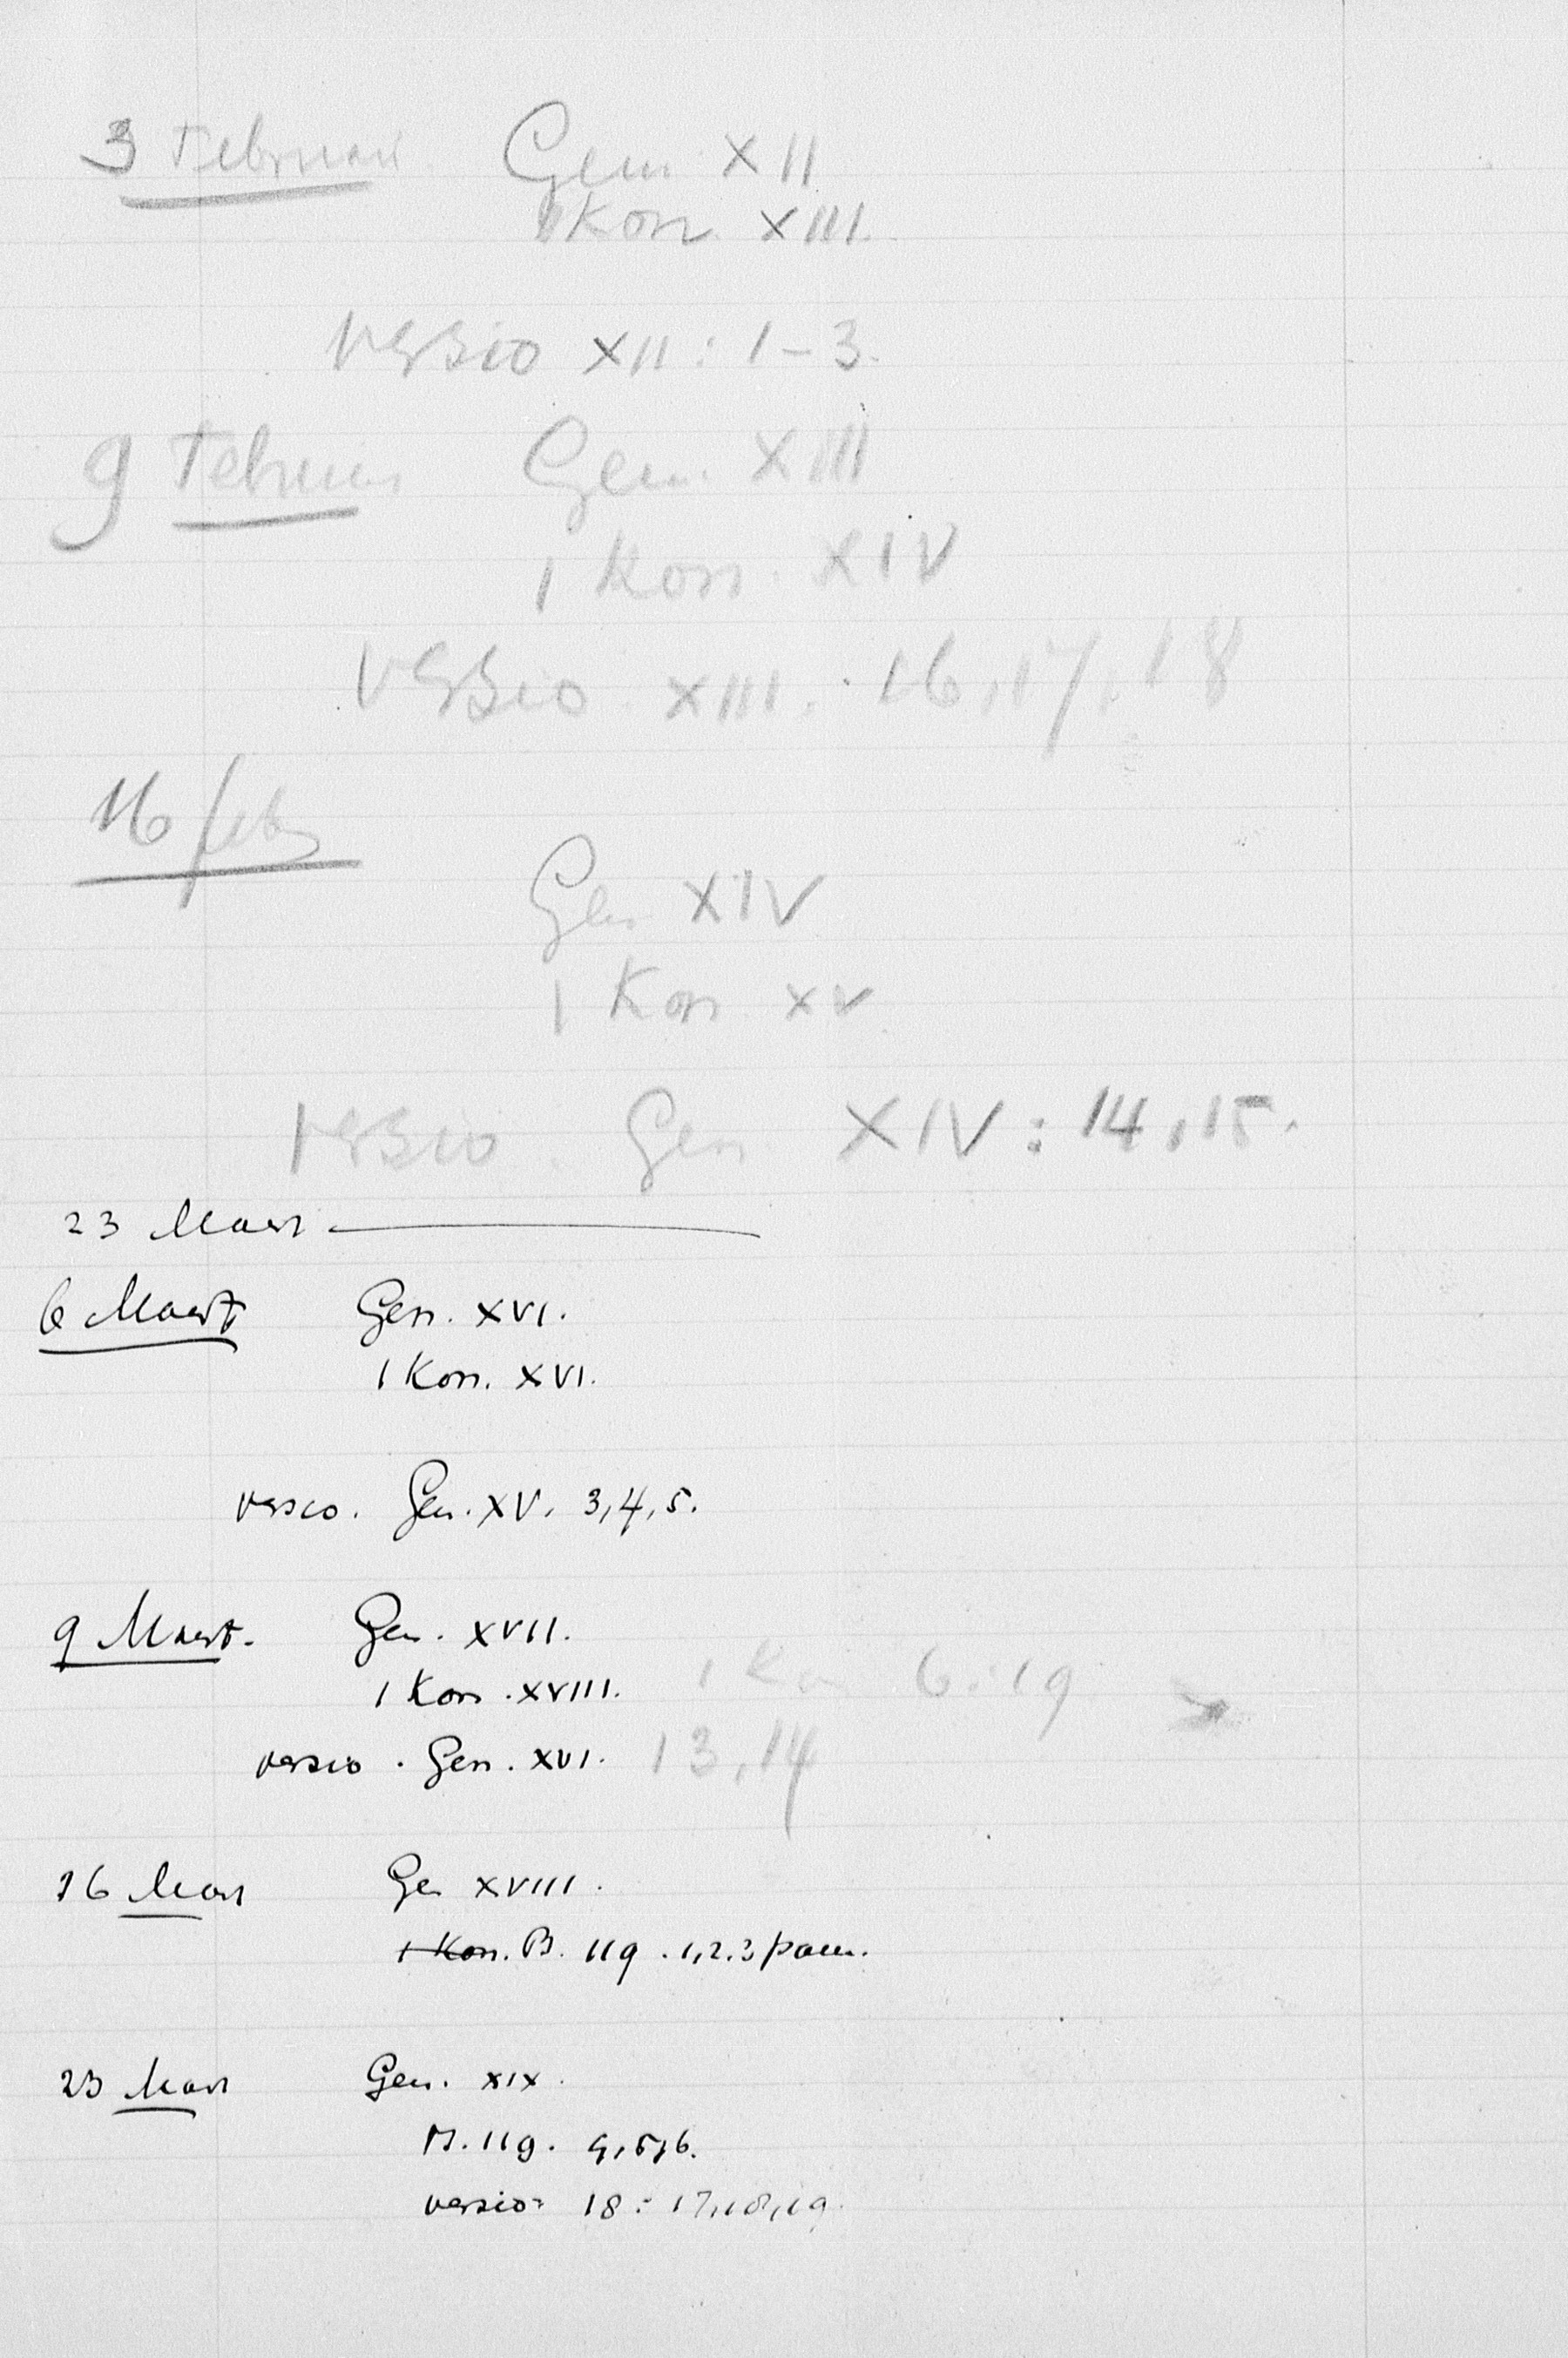 3 Februari Gen XII
1 Kon XIII.
versio XII : 1-3.
9 Februari Gen. XIII
1 Kon. XIV
versio XIII. 16, 17, 18
16 febr
Gen XIV
1 Kon XV
versio. Gen XIV : 14, 15.
23 Maart
6 Maart Gen. XVI.
1 Kon. XVI.
versio. Gen. XV. 3, 4, 5.
9 Maart. Gen. XVII.
1 Kon. XVIII. 1 Kon 6 : 19
versio. Gen. XVI. 13, 14
16 Maart Gen XVIII.
1 Kon. Ps. 119. 1, 2, 3
23 Maart Gen. XIX.
Ps. 119. 4, 5, 6.
versio: 18 : 17, 18, 19.